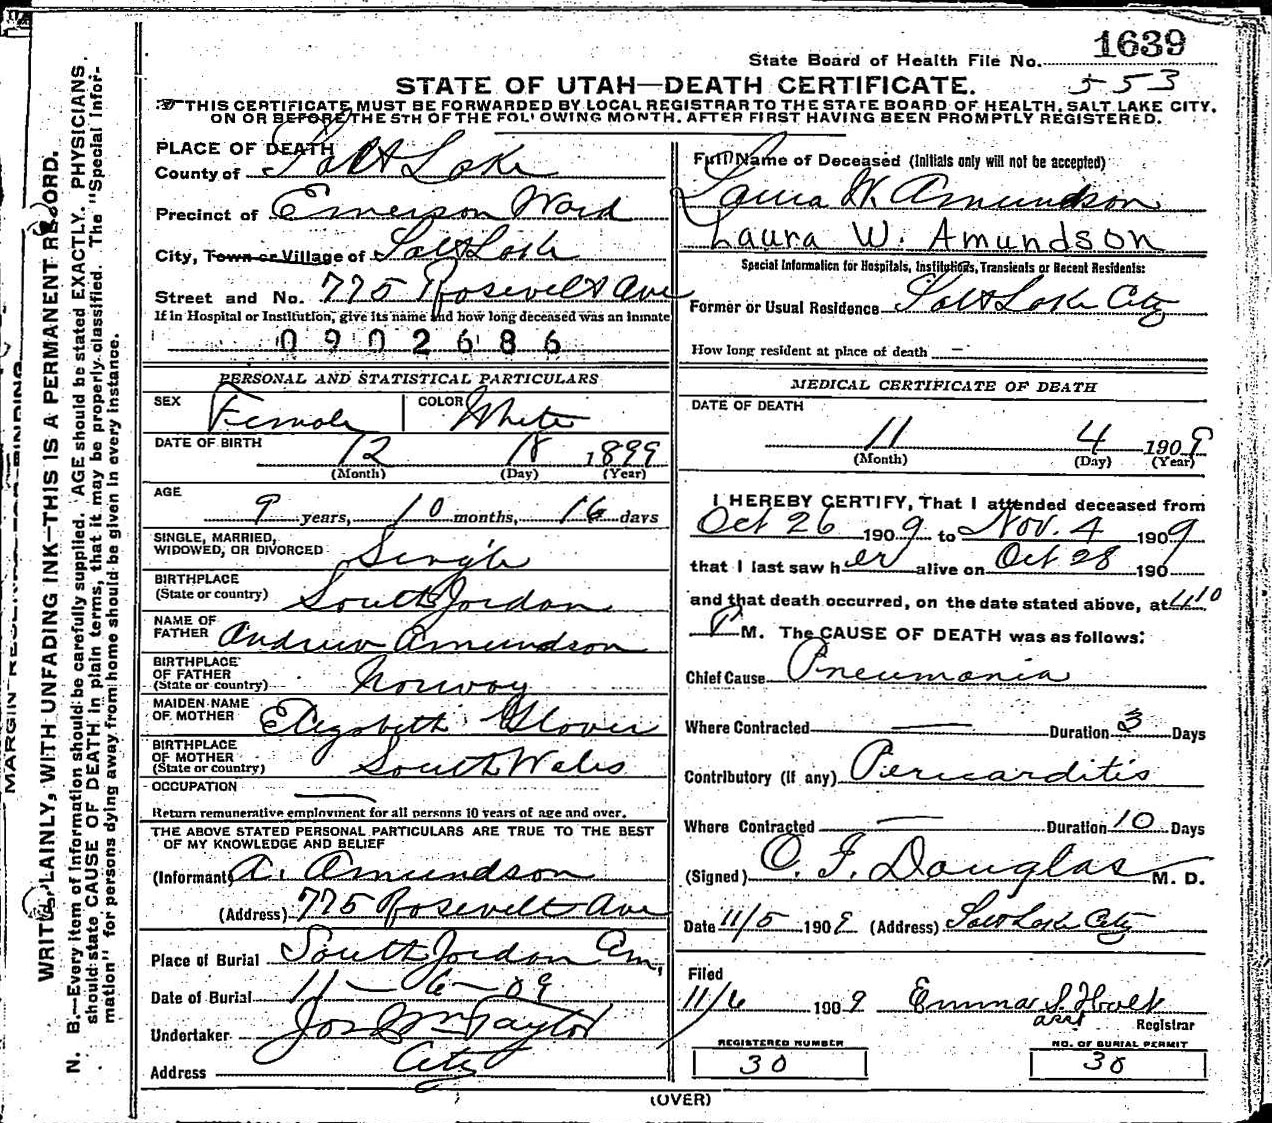 1639
State Board of Health File No. 553
STATE OF UTAH—DEATH CERTIFICATE.
THIS CERTIFICATE MUST BE FORWARDED BY LOCAL REGISTRAR TO THE STATE BOARD OF HEALTH, SALT LAKE CITY,
ON OR BEFORE THE 5TH OF THE FOLLOWING MONTH, AFTER FIRST HAVING BEEN PROMPTLY REGISTERED.
PLACE OF DEATH
County of Salt Lake
Precinct of Emerson Ward
City, Town or Village of Salt Lake
Street and No. 775 Rosevelt Ave
If in Hospital or Institution, give its name and how long deceased was an inmate
0902686
PERSONAL AND STATISTICAL PARTICULARS
SEX Female COLOR White
DATE OF BIRTH 12 18 1899
(Month) (Day) (Year)
AGE
9 years, 10 months, 16 days
SINGLE, MARRIED,
WIDOWED, OR DIVORCED Single
BIRTHPLACE
(State or country) South Jordan
NAME OF
FATHER Andrew Amundson
BIRTHPLACE
OF FATHER
(State or country) Norway
MAIDEN NAME
OF MOTHER Elizabeth Glover
BIRTHPLACE
OF MOTHER
(State or country) South Wales
OCCUPATION
Return remunerative employment for all persons 10 years of age and over.
THE ABOVE STATED PERSONAL PARTICULARS ARE TRUE TO THE BEST
OF MY KNOWLEDGE AND BELIEF
(Informant) A. Amundson
(Address) 775 Rosevelt Ave
Place of Burial South Jordan Cem.
Date of Burial 11 — 6 — 09
Undertaker Jos Wm Taylor
Address City
Full Name of Deceased (Initials only will not be accepted)
Laura W. Amundson
Laura W. Amundson
Special Information for Hospitals, Institutions, Transients or Recent Residents:
Former or Usual Residence Salt Lake City
How long resident at place of death —
MEDICAL CERTIFICATE OF DEATH
DATE OF DEATH
11 4 1909
(Month) (Day) (Year)
I HEREBY CERTIFY, That I attended deceased from
Oct 26 1909 to Nov. 4 1909
that I last saw her alive on Oct 28 190
and that death occurred, on the date stated above, at 11 10
P M. The CAUSE OF DEATH was as follows:
Chief Cause Pneumonia
Where Contracted — Duration 3 Days
Contributory (if any) Pericarditis
Where Contracted — Duration 10 Days
(Signed) O. F. Douglas M. D.
Date 11/5 1909 (Address) Salt Lake City
Filed
11/6 1909 Emma S. Holt
asst Registrar
REGISTERED NUMBER
30
NO. OF BURIAL PERMIT
30
(OVER)
WRITE PLAINLY, WITH UNFADING INK—THIS IS A PERMANENT RECORD.
N. B.—Every item of information should be carefully supplied. AGE should be stated EXACTLY. PHYSICIANS
should state CAUSE OF DEATH in plain terms, that it may be properly classified. The "Special Infor-
mation" for persons dying away from home should be given in every instance.